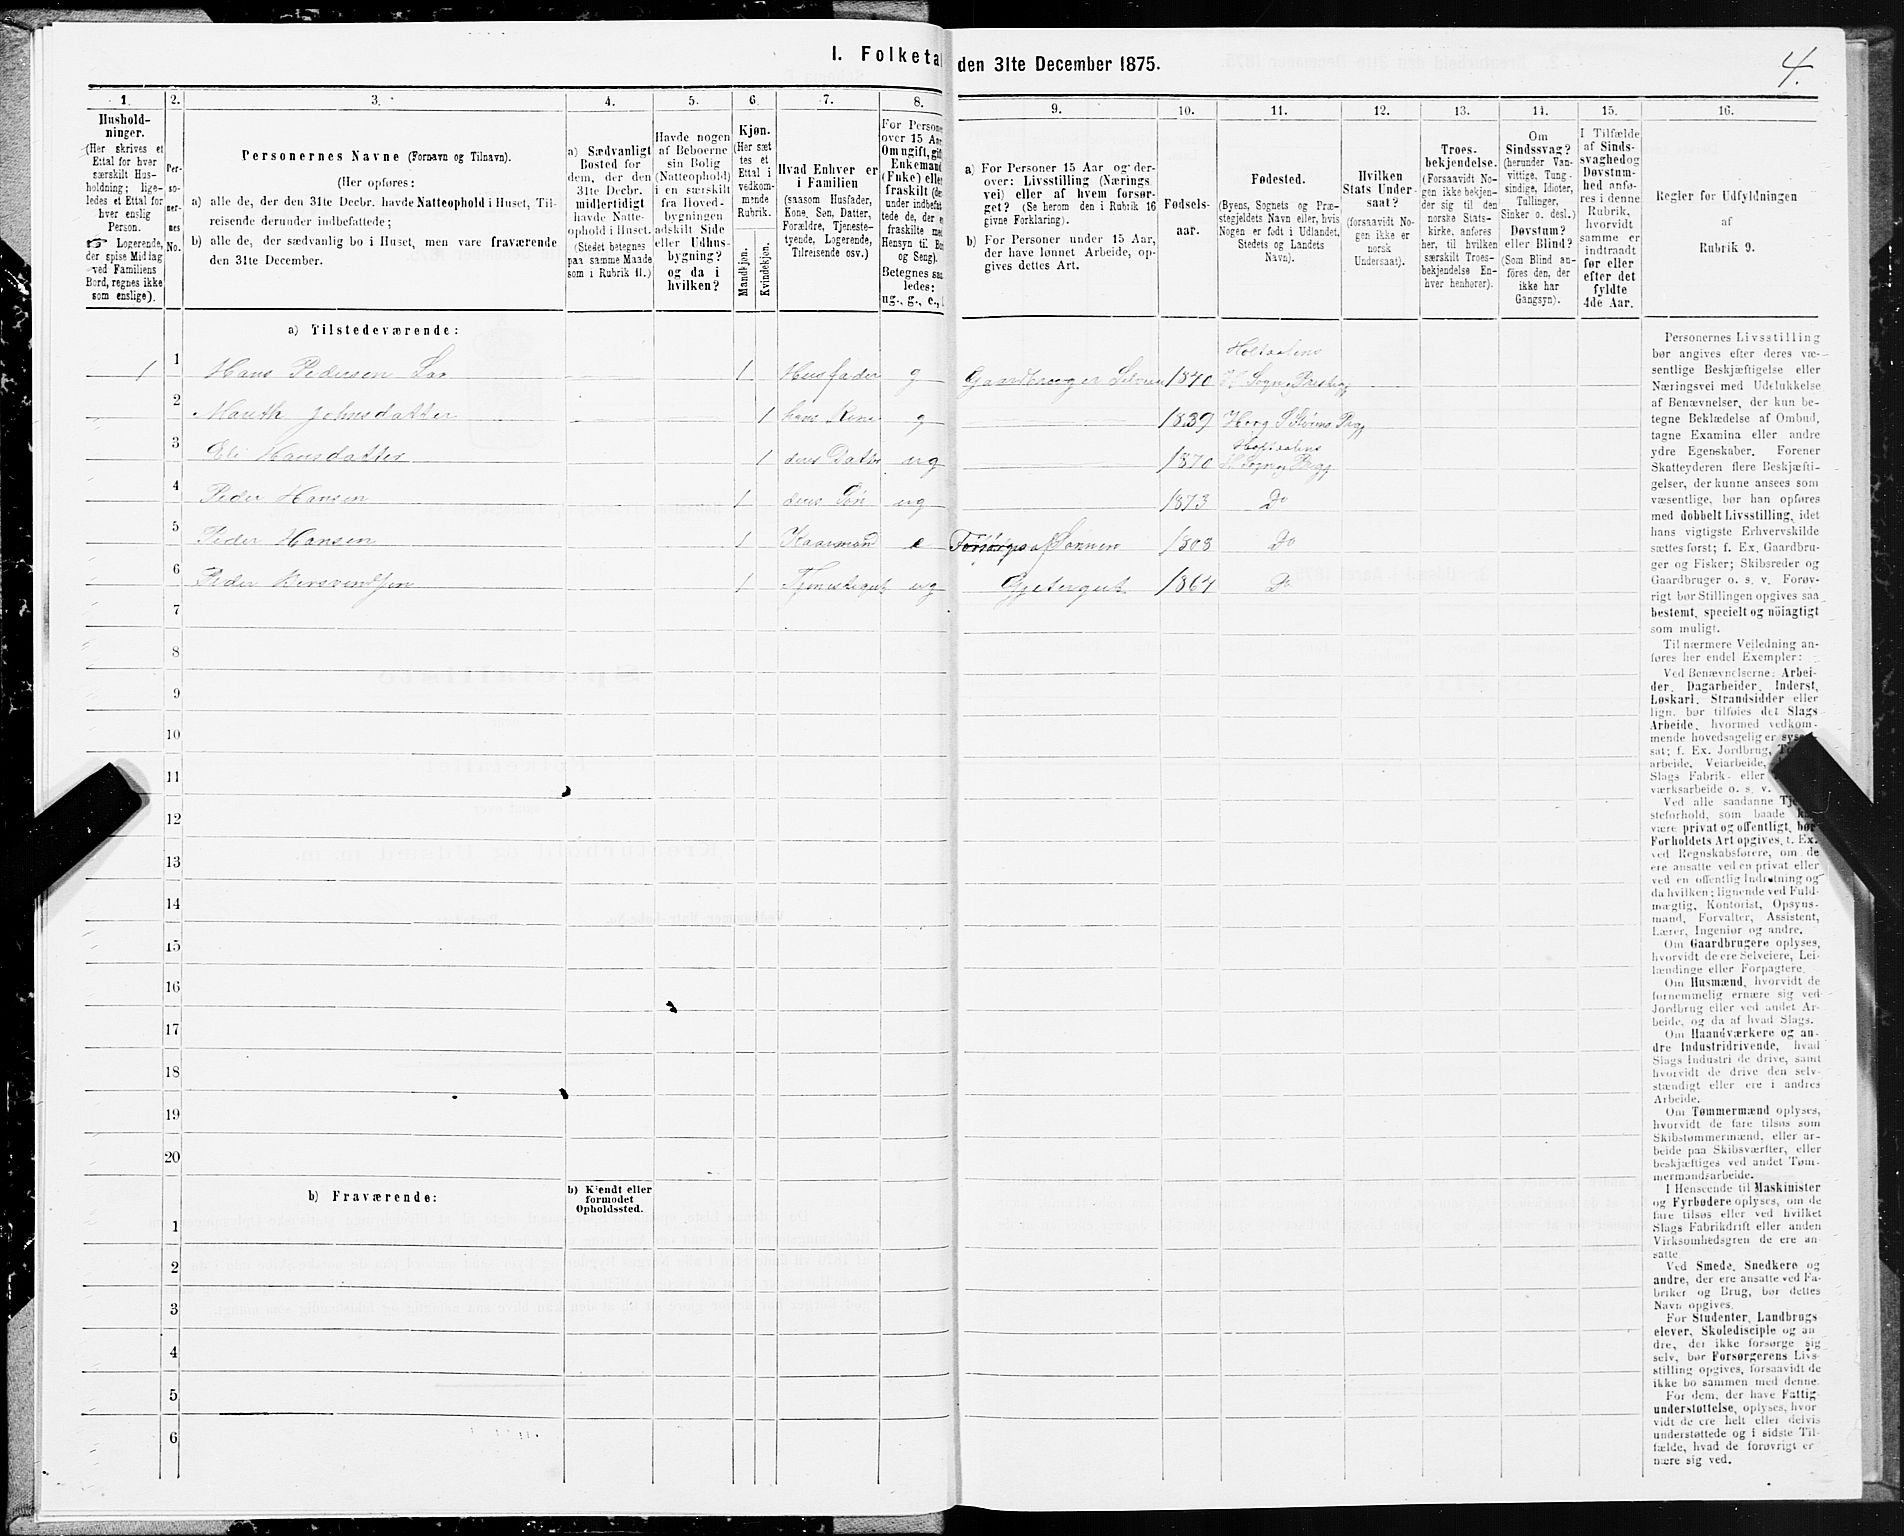 I. Folketal den 31te December 1875.
4.
1.
Hushold-
ninger.
(Her skrives et
Ettal for hver
særskilt Hus-
holdning; lige-
ledes et Ettal for
hver enslig
Person.
☞ Logerende,
der spise Middag
ved Familiens
Bord, regnes ikke
som enslige).
2.
Per-
so-
ner-
nes
No.
3.
Personernes Navne (Fornavn og Tilnavn).
(Her opføres:
a) alle de, der den 31te Decbr. havde Natteophold i Huset, Til-
reisende derunder indbefattede;
b) alle de, der sædvanlig bo i Huset, men vare fraværende
den 31te December.
4.
a) Sædvanligt
Bosted for
dem, der den
31te Decbr.
midlertidigt
havde Natte-
ophold i Huset.
(Stedet betegnes
paa samme Maade
som i Rubrik 11.)
5.
Havde nogen
af Beboerne
sin Bolig
(Natteophold)
i en særskilt
fra Hoved-
bygningen
adskilt Side
eller Udhus-
bygning?
og da i
hvilken?
6.
Kjøn.
(Her sæt
tes et
Ettal i
vedkom-
mende
Rubrik.
Mandkjøn.
Kvindekjøn.
7.
Hvad Enhver er
i Familien
(saasom Husfader,
Kone, Søn, Datter,
Forældre, Tjeneste-
tyende, Logerende,
Tilreisende osv.)
8.
For Persone
over 15 Aar
Om ugift, gift
Enkemand
(Enke) elle
fraskilt (de
under indbefat
tede de, der e
fraskilte med
Hensyn til Bo
og Seng).
Betegnes saa
ledes:
ug., g., e.,
9.
a) For Personer 15 Aar og der-
over: Livsstilling (Nærings
vei) eller af hvem forsør-
get? (Se herom den i Rubrik 16
givne Forklaring).
b) For Personer under 15 Aar,
der have lønnet Arbeide, op-
gives dettes Art.
10.
Fødsels-
aar.
11.
Fødested.
(Byens, Sognets og Præ-
stegjeldets Navn eller, hvis
Nogen er født i Udlandet,
Stedets og Landets
Navn).
12.
Hvilken
Stats Under-
saat?
(forsaavidt No-
gen ikke er
norsk
Undersaat).
13.
Troes-
bekjendelse.
(Forsaavidt No-
gen ikke bekjen-
der sig til den
norske Stats-
kirke, anføres
her, til hvilken
særskilt Troes-
bekjendelse En-
hver henhører).
14.
Om
Sindssvag?
(herunder Van-
vittige, Tung-
sindige, Idioter,
Tullinger,
Sinker o. desl.)
Døvstum?
eller Blind?
(Som Blind an-
føres den, der
ikke har
Gangsyn).
15.
I Tilfælde
af Sinds-
svaghed og
Døvstum-
hed anfø-
res i denne
Rubrik,
hvorvidt
samme er
indtraadt
før eller
efter det
fyldte
4de Aar.
16.
Regler for Udfyldningen
af
Rubrik 9.
a) Tilstedeværende:
1 1 Hans Pedersen 1 Husfader g Gaardbruger 1840 Holtaalens
2 Marith Johnsdatter 1 hans Kone g 1839
3 Eli Hansdatter 1 deres Datter ug 1870 Holtaalens
4 Peder Hansen 1 deres Søn ug 1873 Do
5 Peder Hansen 1 Kaarmand e Forsørges af Sønnen 1803 Do
6 Peder Bersvendsen 1 Tjenestegut ug Gjetergut 1864 Do
7
8
9
10
11
12
13
14
15
16
17
18
19
20
b) Fraværende:
b) Kjendt eller
formodet
Opholdssted.
1
2
3
4
5
6
Personernes Livsstilling
bør angives efter deres væ-
sentlige Beskjæftigelse eller
Næringsvei med Udelukkelse
af Benævnelser, der kun be-
tegne Beklædelse af Ombud,
tagne Examina eller andre
ydre Egenskaber. Forener
Skatteyderen flere Beskjæfti-
gelser, der kunne ansees som
væsentlige, bør han opføres
med dobbelt Livsstilling, idet
hans vigtigste Erhvervskilde
sættes først; f. Ex. Gaardbru-
ger og Fisker; Skibsreder og
Gaardbruger o. s. v. Forøv-
rigt bør Stillingen opgives saa
bestemt, specielt og nöiagtigt
som muligt.
Til nærmere Veiledning an-
føres her endel Exempler:
Ved Benævnelserne: Arbei-
der, Dagarbeider, Inderst,
Løskarl, Strandsidder eller
lign. bør tilføies det Slags
Arbeide, hvormed vedkom-
mende hovedsagelig er syssel-
sat; f. Ex. Jordbrug,
arbeide, Veiarbeide,
Slags Fabrik- eller
værksarbeide o. s. v.
Ved alle saadanne Tje-
steforhold, som baade
være privat og offentligt, bør
Forholdets Art opgives, f. Ex.
ved Regnskabsførere, om de
ere ansatte ved en privat eller
ved en offentlig Indretning og
da hvilken; lignende ved Fuld-
mægtig, Kontorist, Opsyns-
mand, Forvalter, Assistent,
Lærer, Ingeniør og andre.
Om Gaardbrugere oplyses,
hvorvidt de ere Selveiere, Lei-
lændinge eller Forpagtere.
Om Husmænd, hvorvidt de
fornemmelig ernære sig ved
Jordbrug eller ved andet Ar-
beide, og da af hvad Slags.
Om Haandværkere og an-
dre Industridrivende, hvad
Slags Industri de drive, samt
hvorvidt de drive den selv-
stændigt eller ere i andres
Arbeide.
Om Tømmermænd oplyses,
hvorvidt de fare tilsøs som
Skibstømmermænd, eller ar-
beide paa Skibsværfter, eller
beskjæftiges ved andet Tøm-
mermandsarbeide.
I Henseende til Maskinister
og Fyrbødere oplyses, om de
fare tilsøs eller ved hvilket
Slags Fabrikdrift eller anden
Virksomhedsgren de ere an-
satte.
Ved Smede, Snedkere og
andre, der ere ansatte ved Fa-
briker og Brug, bør dettes
Navn opgives.
For Studenter, Landbrugs
elever, Skoledisciple og an
dre, der ikke forsørge sig
selv, bør Forsørgerens Livs-
stilling opgives, forsaavidt de
ikke bo sammen med denne.
For dem, der have Fattig-
understøttelse, oplyses, hvor
vidt de ere helt eller delvis
understøttede og i sidste Til-
fælde, hvad de forøvrigt er
nære sig ved.